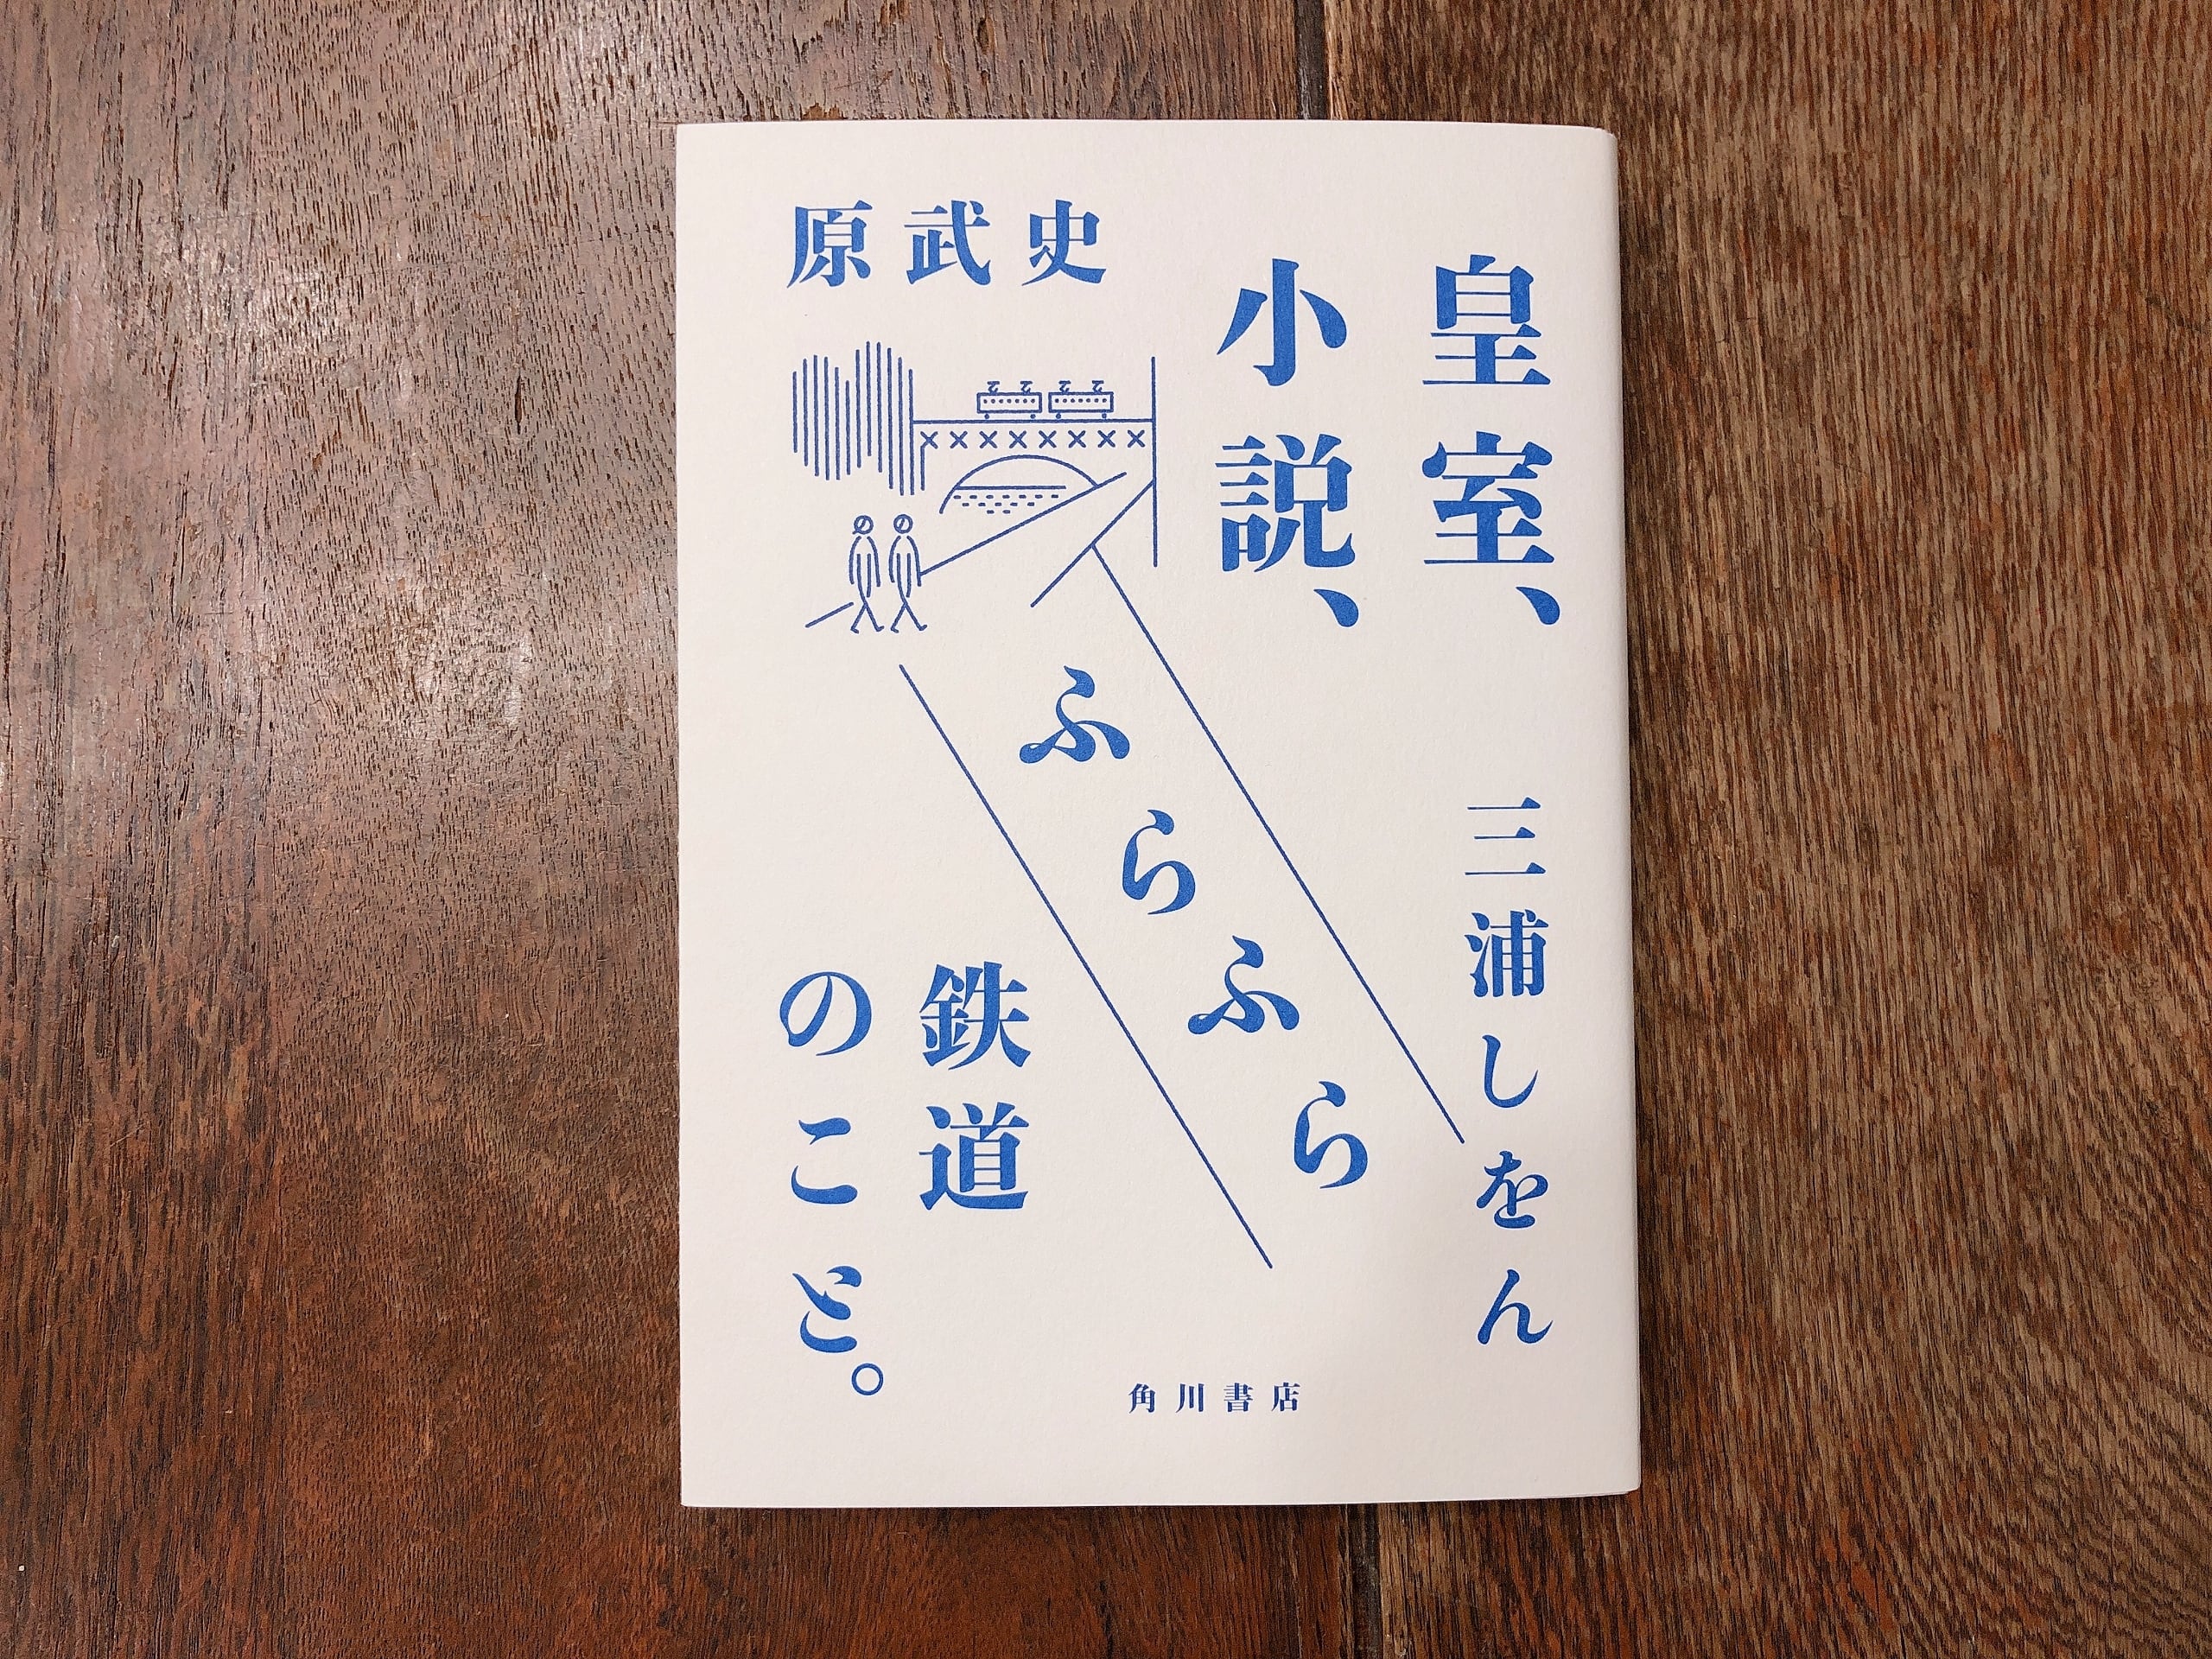 皇室、
小説、
ふらふら
鉄道
のこと。
原武史
三浦しをん
角川書店